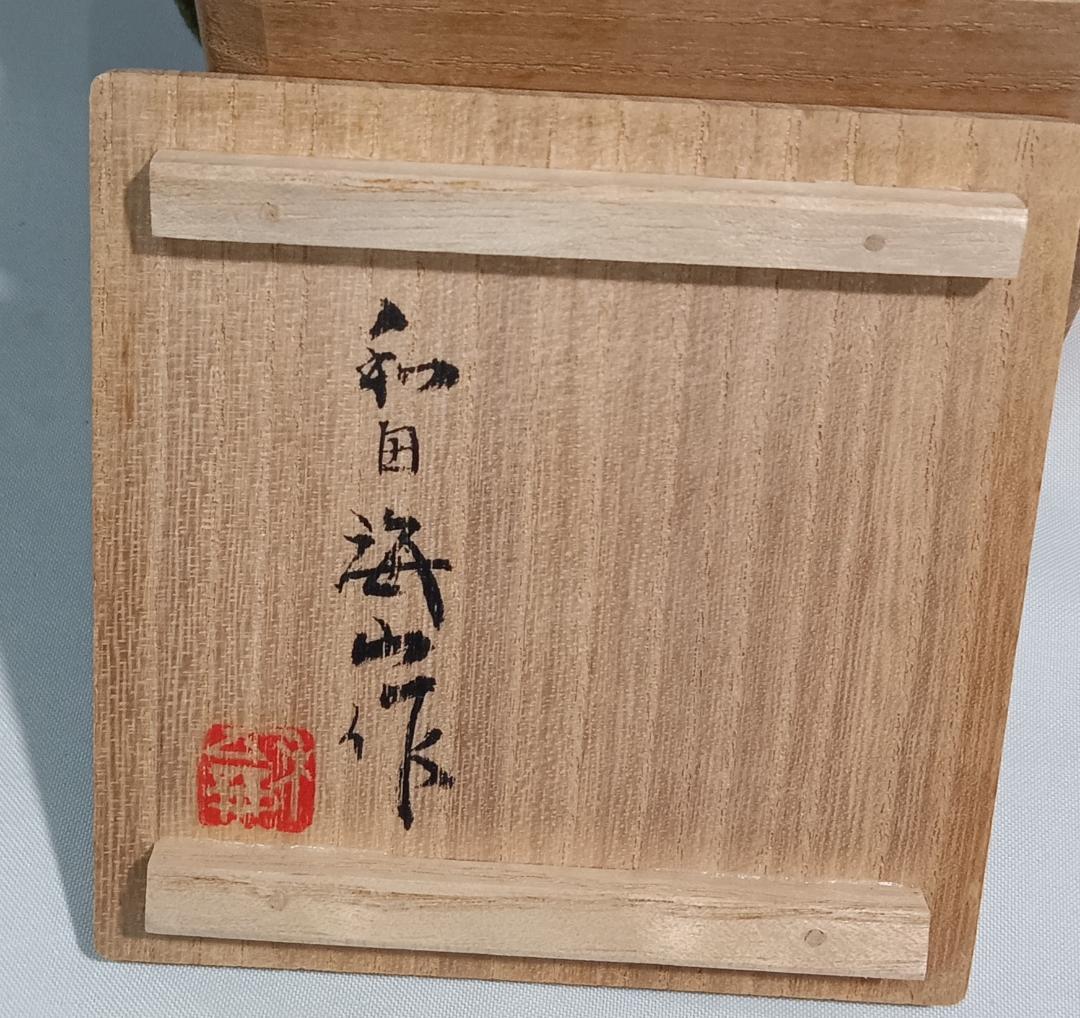 和田海山作